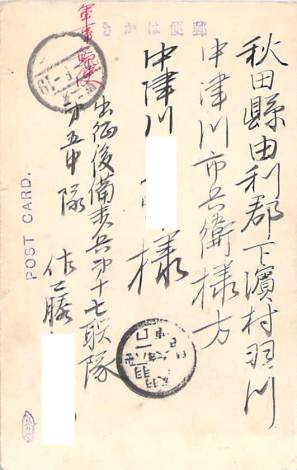 郵便はかき
軍事郵便
秋田縣由利郡下濱村羽川
中津川市兵衛様方
中津川
様
出征後備歩兵第十七聯隊
第五中隊
佐々藤
POST CARD.